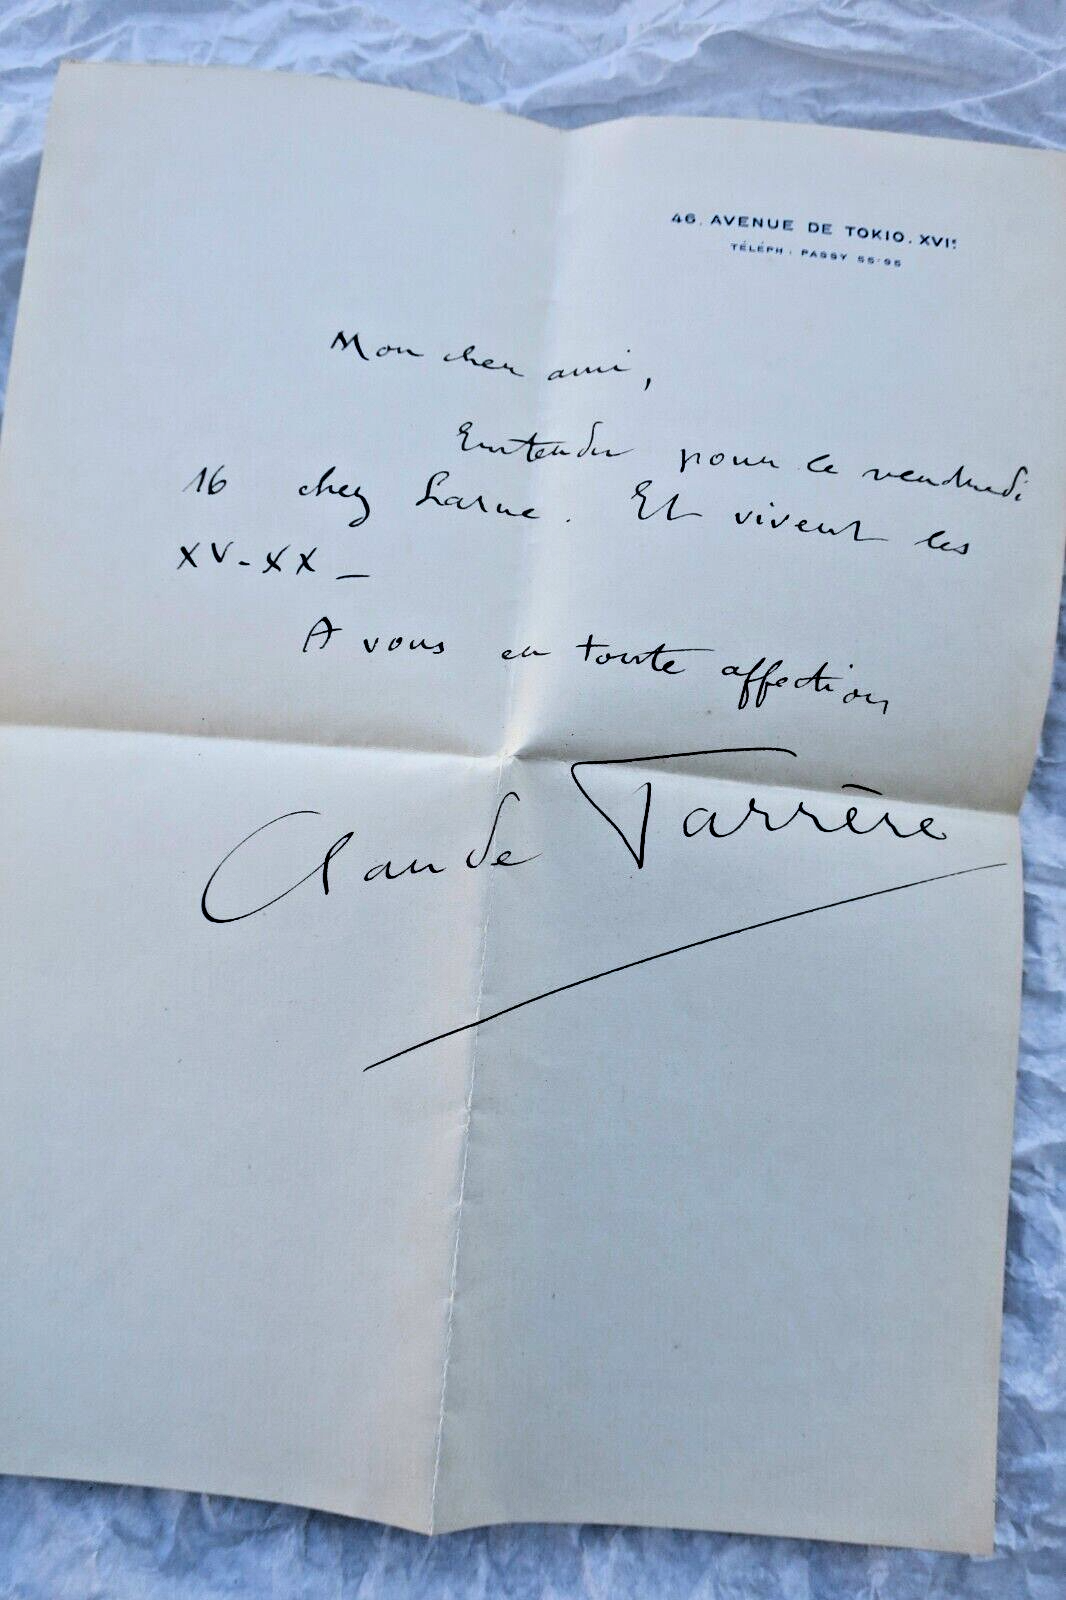 46, AVENUE DE TOKIO. XVIe
TÉLÉPH : PASSY 55-95
Mon cher ami,
Entendu pour le vendredi
16 chez Larue. Et vivent les
XV-XX –
A vous en toute affection
Claude Farrère